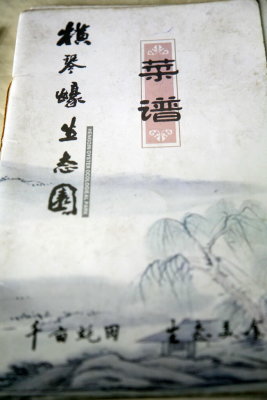 横琴蠔生态園
HENGQIN OYSTER ECOLOGICAL PARK
菜谱
千亩蚝田 生态美食